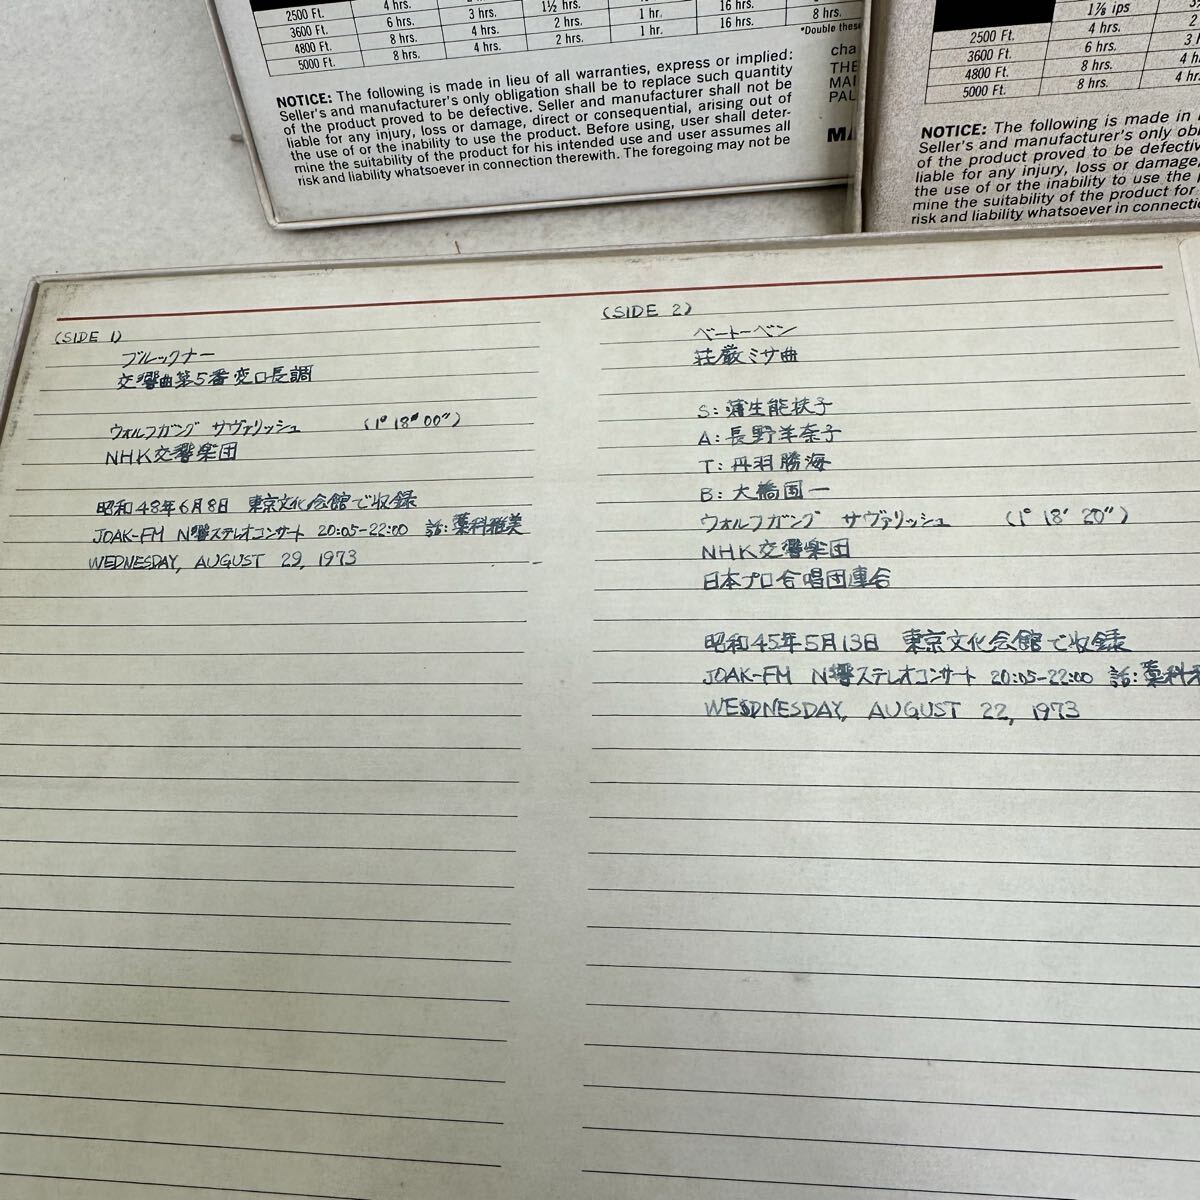 2500 Ft. 4 hrs. 1½ hrs. 16 hrs.
3600 Ft. 6 hrs. 3 hrs. 2 hrs. 1 hr. 16 hrs. 8 hrs.
4800 Ft. 8 hrs. 4 hrs. 2 hrs. 1 hr.
5000 Ft. 8 hrs. 4 hrs.
*Double these
NOTICE: The following is made in lieu of all warranties, express or implied:
Seller's and manufacturer's only obligation shall be to replace such quantity
of the product proved to be defective. Seller and manufacturer shall not be
liable for any injury, loss or damage, direct or consequential, arising out of
the use of or the inability to use the product. Before using, user shall deter-
mine the suitability of the product for his intended use and user assumes all
risk and liability whatsoever in connection therewith. The foregoing may not be
cha
THE
MAI
PAL
1⅞ ips
2500 Ft. 4 hrs.
3600 Ft. 6 hrs.
4800 Ft. 8 hrs.
5000 Ft. 8 hrs.
NOTICE: The following is made in
Seller's and manufacturer's only
of the product proved to be defective
liable for any injury, loss or damage,
the use of or the inability to use the
mine the suitability of the product for
risk and liability whatsoever in
(SIDE 1)
ブルックナー
交響曲第5番変ロ長調
ウォルフガング サヴァリッシュ (1° 18′ 00″)
NHK交響楽団
昭和48年6月8日 東京文化会館で収録
JOAK-FM N響ステレオコンサート 20:05-22:00 話:藁科雅美
WEDNESDAY, AUGUST 29, 1973
(SIDE 2)
ベートーベン
荘厳ミサ曲
S:蒲生能扶子
A:長野羊奈子
T:丹羽勝海
B:大橋国一
ウォルフガング サヴァリッシュ (1° 18′ 20″)
NHK交響楽団
日本プロ合唱団連合
昭和45年5月13日 東京文化会館で収録
JOAK-FM N響ステレオコンサート 20:05-22:00 話:藁科
WEDNESDAY, AUGUST 22, 1973